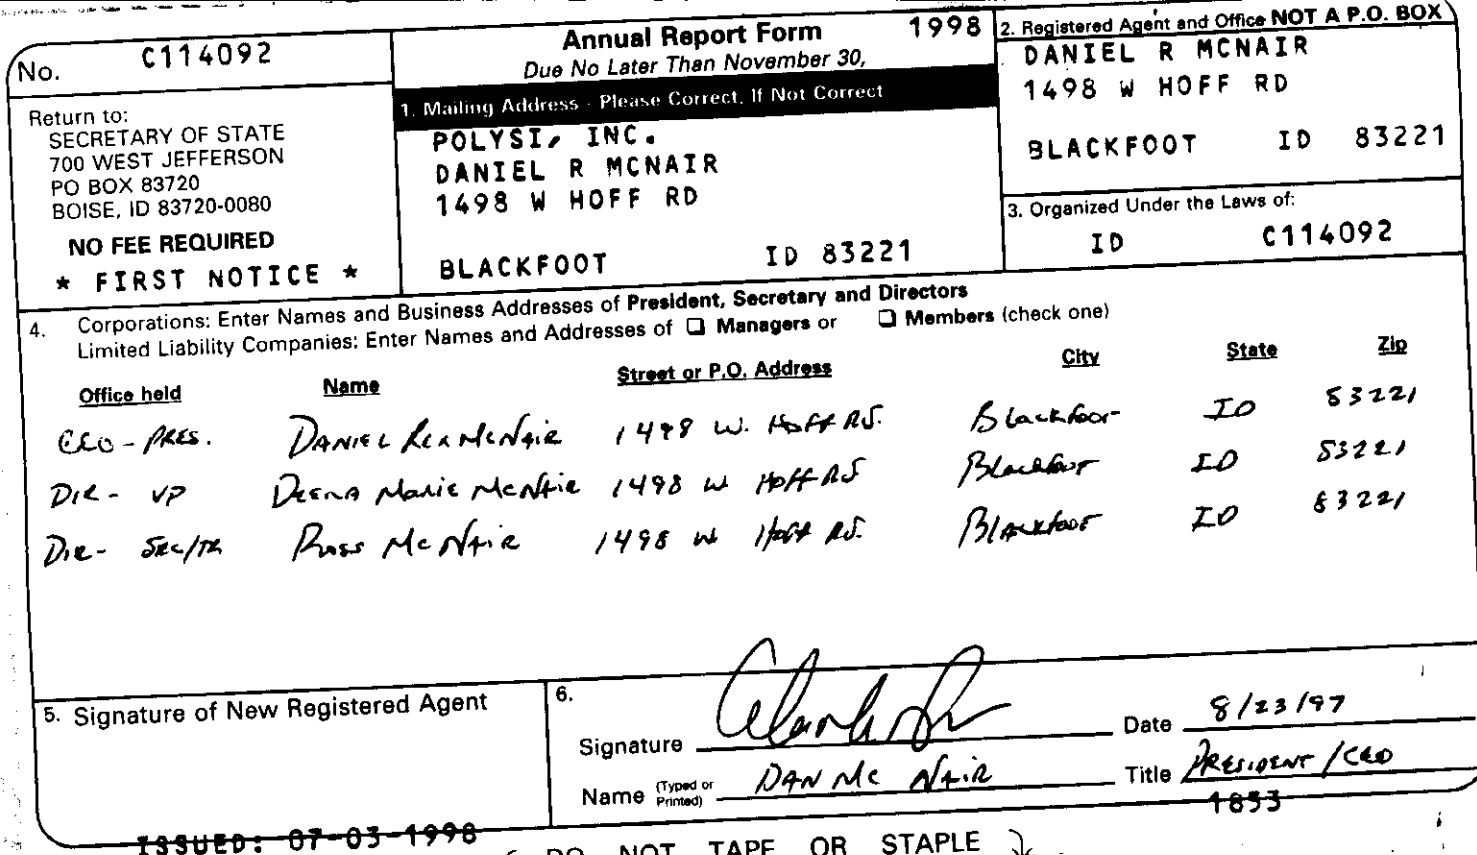 No. C114092
Return to:
SECRETARY OF STATE
700 WEST JEFFERSON
PO BOX 83720
BOISE, ID 83720-0080
NO FEE REQUIRED
* FIRST NOTICE *
Annual Report Form 1998
Due No Later Than November 30,
1. Mailing Address - Please Correct, If Not Correct
POLYSI, INC.
DANIEL R MCNAIR
1498 W HOFF RD
BLACKFOOT ID 83221
2. Registered Agent and Office NOT A P.O. BOX
DANIEL R MCNAIR
1498 W HOFF RD
BLACKFOOT ID 83221
3. Organized Under the Laws of:
ID C114092
4. Corporations: Enter Names and Business Addresses of President, Secretary and Directors
Limited Liability Companies: Enter Names and Addresses of ❏ Managers or ❏ Members (check one)
Office held Name Street or P.O. Address City State Zip
CEO - PRES. DANIEL Rex McNair 1498 W. Hoff Rd. Blackfoot ID 83221
DIR - VP DEENA Marie McNair 1498 W Hoff Rd Blackfoot ID 83221
DIR - SEC/TR Ross McNair 1498 W Hoff Rd. Blackfoot ID 83221
5. Signature of New Registered Agent
6.
Signature Date 8/23/97
Name (Typed or Printed) DAN Mc NAIR Title PRESIDENT / CEO
1853
ISSUED: 07-03-1998
DO NOT TAPE OR STAPLE